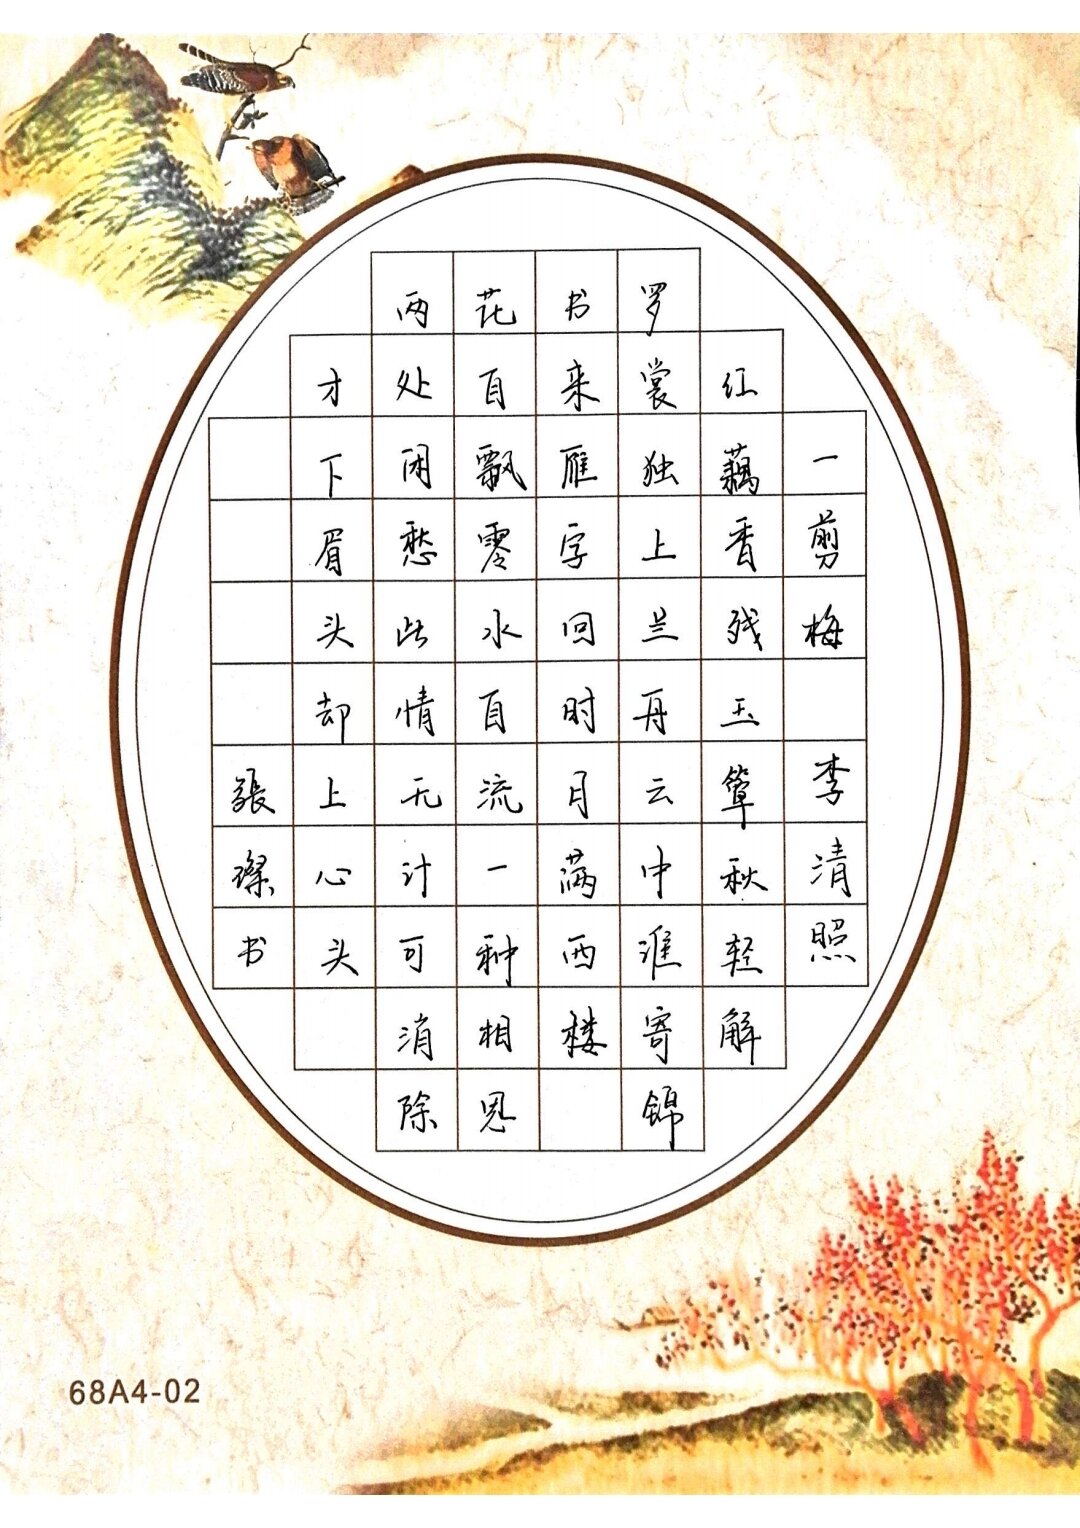 一剪梅 李清照
红藕香残玉簟秋轻解
罗裳独上兰舟云中谁寄锦
书来雁字回时月满西楼
花自飘零水自流一种相思
两处闲愁此情无计可消除
才下眉头却上心头
張璨书
68A4-02